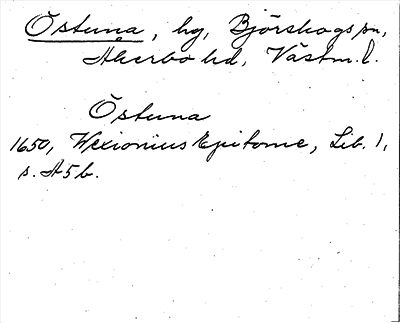 Östuna, hg, Björskogs sn,
Åkerbo hd, Västm. l.
Östuna
1650, Wexionius Epitome, Lib. 1,
s. A5b.